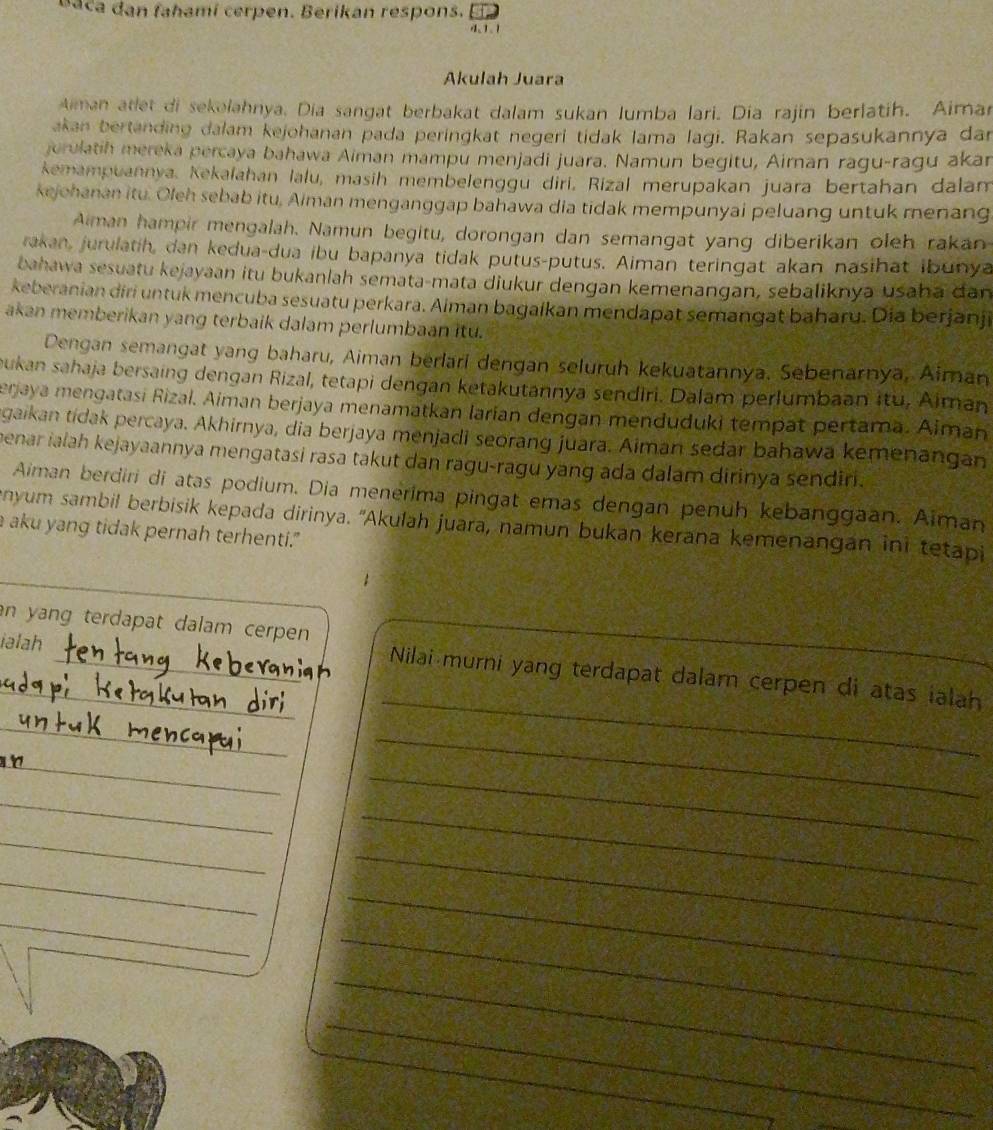 dan fahami cerpen. Berikan respons.
4.1.1
Akulah Juara
Aiman atlet di sekolahnya. Dia sangat berbakat dalam sukan lumba lari. Dia rajin berlatih. Aima
akan bertanding dalam kejohanan pada peringkat negeri tidak lama lagi. Rakan sepasukannya da
jurulatih mereka percaya bahawa Aiman mampu menjadi juara. Namun begitu, Aiman ragu-ragu aka
kemampuannya. Kekalahan lalu, masih membelenggu diri. Rizal merupakan juara bertahan dalam
kejohanan itu. Oleh sebab itu, Aiman menganggap bahawa dia tidak mempunyai peluang untuk menang
Aiman hampir mengalah. Namun begitu, dorongan dan semangat yang diberikan oleh rakan-
rakan, jurulatih, dan kedua-dua ibu bapanya tidak putus-putus. Aiman teringat akan nasihat ibunya
bahawa sesuatu kejayaan itu bukanlah semata-mata diukur dengan kemenangan, sebaliknya usaha dan
keberanian diri untuk mencuba sesuatu perkara. Aiman bagaikan mendapat semangat baharu. Dia berjanji
akan memberikan yang terbaik dalam perlumbaan itu.
Dengan semangat yang baharu, Aiman berlari dengan seluruh kekuatannya. Sebenarnya, Aiman
ukan sahaja bersaing dengan Rizal, tetapi dengan ketakutannya sendiri. Dalam perlumbaan itu, Aiman
erjaya mengatasi Rizal. Aiman berjaya menamatkan larian dengan menduduki tempat pertama. Aiman
gaikan tidak percaya. Akhirnya, dia berjaya menjadi seorang juara. Aiman sedar bahawa kemenangan
enar ialah kejayaannya mengatasi rasa takut dan ragu-ragu yang ada dalam dirinya sendiri.
Aiman berdiri di atas podium. Dia menerima pingat emas dengan penuh kebanggaan. Aiman
nyum sambil berbisik kepada dirinya. "Akulah juara, namun bukan kerana kemenangan ini tetapi
a aku yang tidak pernah terhenti."
an yang terdapat dalam cerpen
ialah tentang keberanian
adapi ketakutan diri
untuk mencapai
an
Nilai murni yang terdapat dalam cerpen di atas ialah